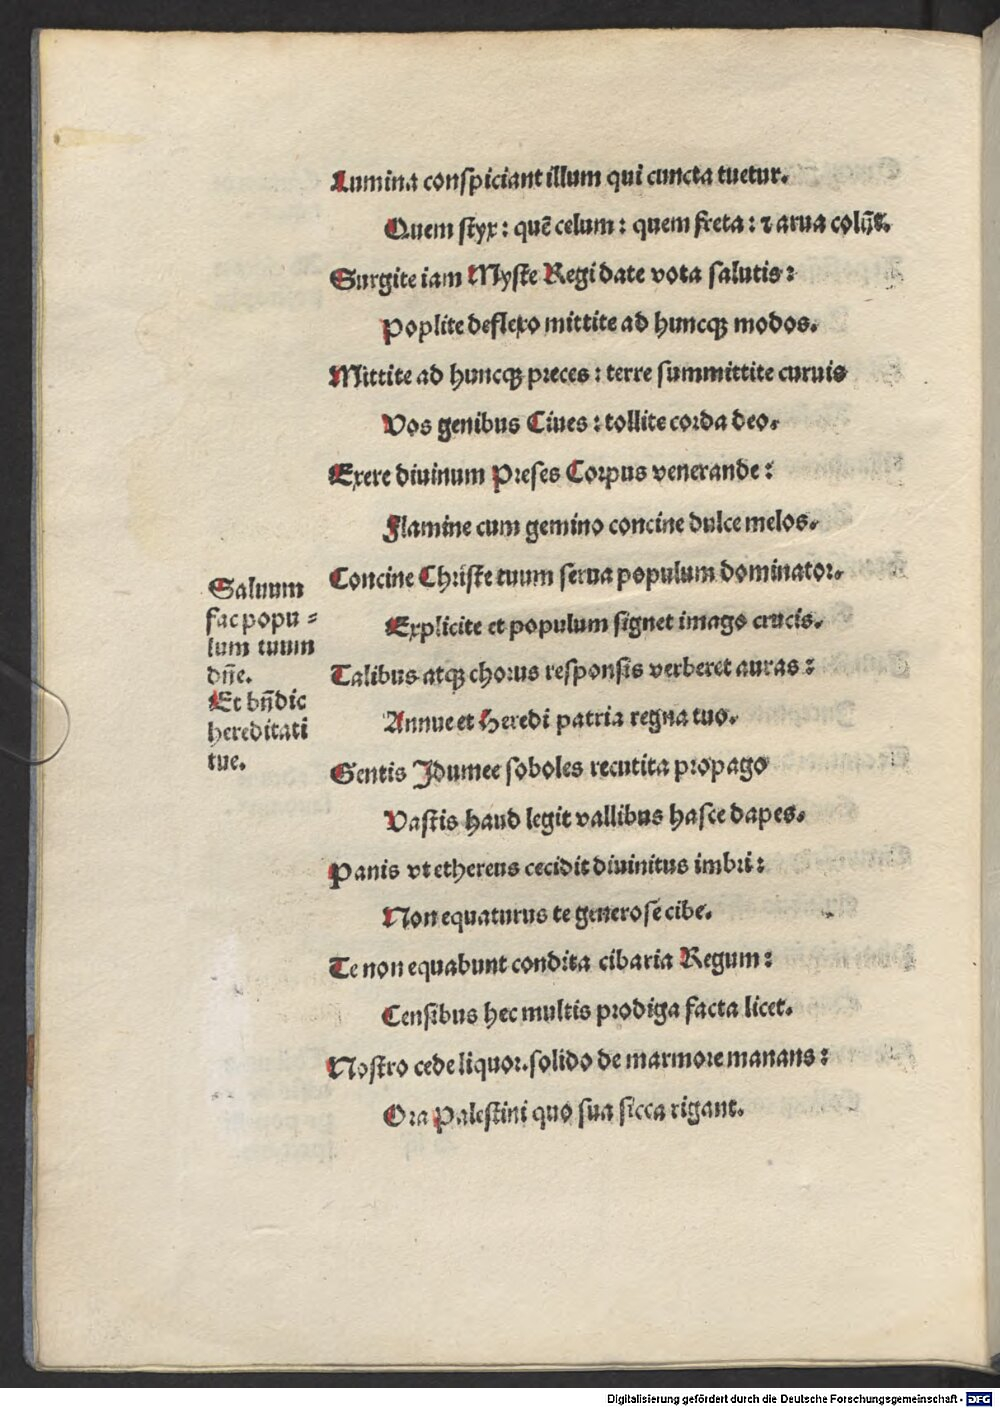 Lumina conspiciant illum qui cuncta tuetur.
Quem styx: quē celum: quem freta: ⁊ arua colūt.
Surgite iam Myste Regi date vota salutis:
Poplite deflexo mittite ad huncqꝫ modos.
Mittite ad huncqꝫ preces: terre summittite curuis
Vos genibus Ciues: tollite corda deo.
Exere diuinum Preses Corpus venerande:
Flamine cum gemino concine dulce melos.
Concine Christe tuum serua populum dominator.
Explicite et populum signet imago crucis.
Talibus atqꝫ chorus responsis verberet auras:
Annue et Heredi patria regna tuo.
Gentis Idumee soboles recutita propago
Vastis haud legit vallibus hasce dapes.
Panis vt ethereus cecidit diuinitus imbri:
Non equaturus te generose cibe.
Te non equabunt condita cibaria Regum:
Censibus hec multis prodiga facta licet.
Nostro cede liquor. solido de marmore manans:
Ora Palestini quo sua sicca rigant.
Saluum
fac popu =
lum tuum
dn̄e.
Et bn̄dic
hereditati
tue.
Digitalisierung gefördert durch die Deutsche Forschungsgemeinschaft - DFG